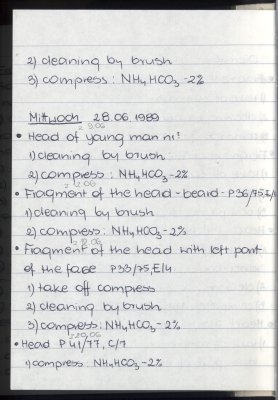 2) cleaning by brush
3) compress: NH4HCO3-2%
Mittwoch 28.06.1989
• Head of young man n:!
1) cleaning by brush
2) compress: NH4HCO3-2%
• Fragment of the head-beard-P36/75,E/4
1) cleaning by brush
2) compress: NH4HCO3-2%
• Fragment of the head with left part
of the face P33/75,E/4
1) take off compress
2) cleaning by brush
3) compress: NH4HCO3-2%
• Head P41/77, C/7
1) compress: NH4HCO3-2%